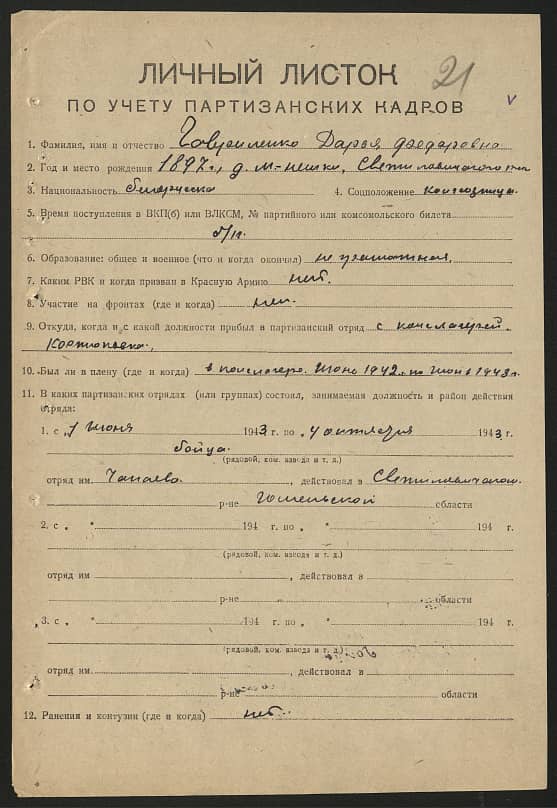 ЛИЧНЫЙ ЛИСТОК
21
ПО УЧЕТУ ПАРТИЗАНСКИХ КАДРОВ
v
1. Фамилия, имя и отчество Дарья Федаровна
2. Год и место рождения 1897 г., д.
3. Национальность белорусска 4. Соцположение колхозница.
5. Время поступления в ВКП(б) или ВЛКСМ, № партийного или комсомольского билета
б/п.
6. Образование: общее и военное (что и когда окончил) не граматная.
7. Каким РВК и когда призван в Красную Армию нет.
8. Участие на фронтах (где и когда) нет.
9. Откуда, когда и с какой должности прибыл в партизанский отряд с
10. Был ли в плену (где и когда) в 1942 г. по 1943 г.
11. В каких партизанских отрядах (или группах) состоял, занимаемая должность и район действия
отряда:
1. с 1 Июня 1943 г. по 4 октября 1943 г.
бойца.
(рядовой, ком. взвода и т. д.)
отряд им. Чапаева , действовал в
р-не Гомельской области
2. с „ " 194 г. по „ " 194 г.
(рядовой, ком. взвода и т. д.)
отряд им , действовал в
р-не области
3. с „ " 194 г. по „ " 194 г.
(рядовой, ком. взвода и т. д.)
отряд им. , действовал в
р-не области
12. Ранения и контузии (где и когда) нет.